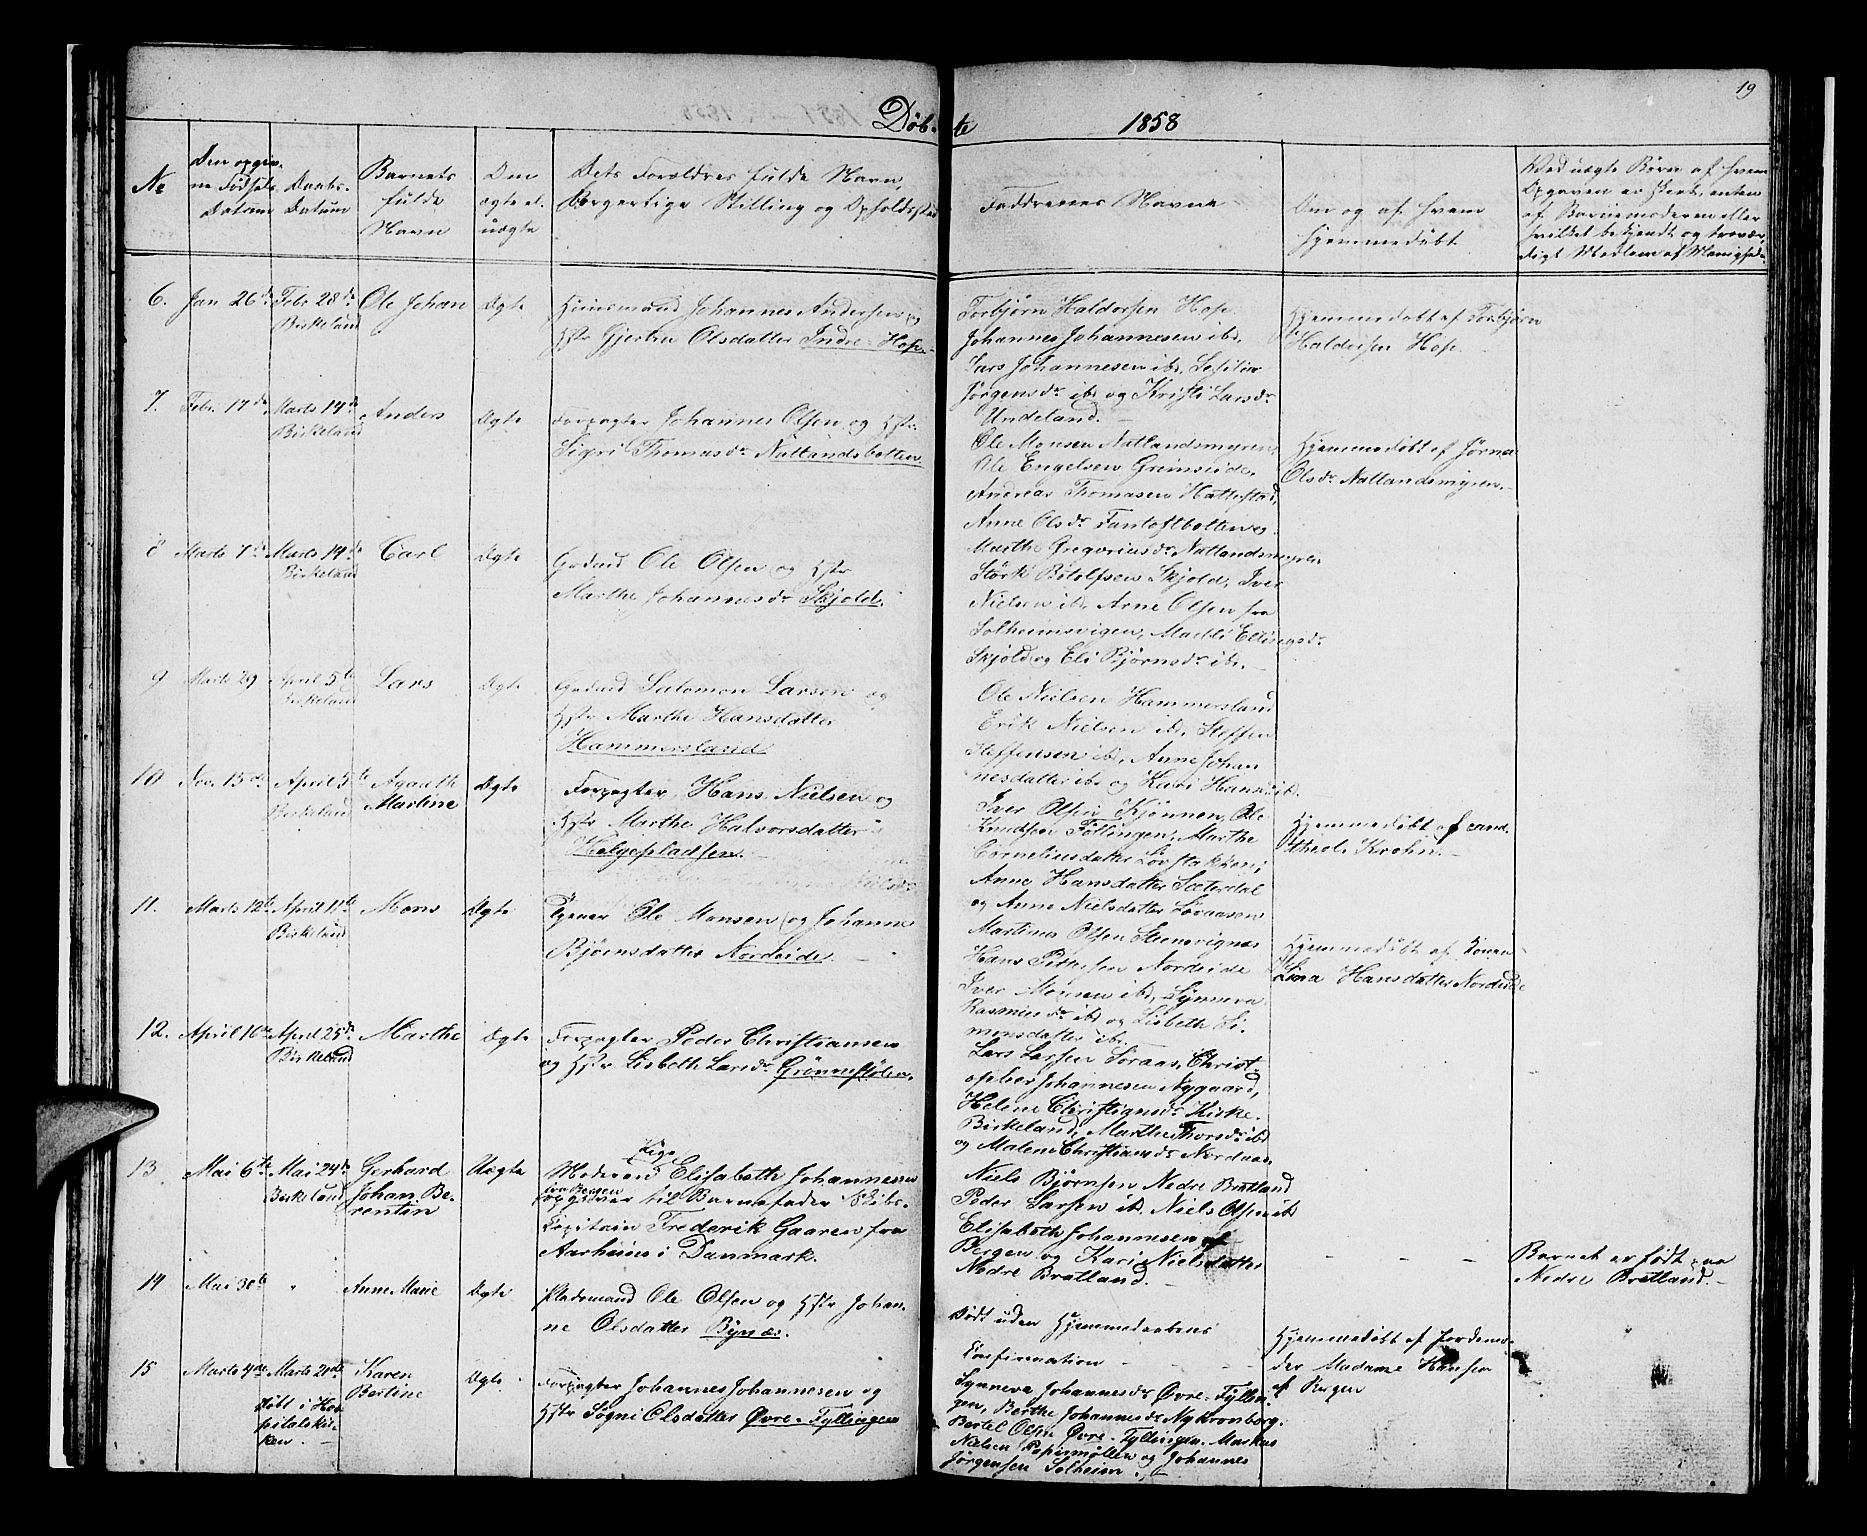 19
Døbte 1858
No
Den opgivne Fødsels Datum
Daabs-Datum
Barnets fulde Navn
Om ægte el. uægte
Dets Forældres fulde Navn, Borgerlige Stilling og Opholdssted
Faddrenes Navne
Om og af hvem hjemmedøbt
Ved uægte Børn af hvem
Opgaven er skeet, enten
af Barnemoderen eller
hvilket bekjendt og trovær-
digt Medlem af Menighed.
6. Jan 26de Febr 28de Birkeland Ole Johan Ægte
Huusmand Johannes Andersen og
Hstr Gjertru Olsdatter Indre-Hop.
Torbjørn Haldorsen Hop.
Johannes Johannesen ibd,
Lars Johannesen ibd,
Jørgensdr ibd og Kristi Larsdr
Undeland.
Hjemmedøbt af Torbjørn
Haldorsen Hop.
7. Febr. 17de Marts 14de Birkeland Anders Ægte
Forpagter Johannes Olsen og Hstr
Sigri Thomasdr Natlandsbotten
Ole Monsen Natlandsmyren,
Ole Engelsen Grimseide,
Andreas Thomasen Hattestad,
Anne Olsdr Fantoftbotten og
Marthe Gregoriusdr Natlandsmyren
Hjemmedøbt af Jørna
Olsdr Natlandsmyren.
8 Marts 7de Marts 14de Birkeland Carl Ægte
Gaardmd Ole Olsen og Hstr
Marthe Johannesdr Skjold.
Størk Botolfsen Skjold, Iver
Nielsen ibd, Arne Olsen fra
Solheimsvigen, Marthe Ellingsdr
Skjold og Eli Bjørnsdr ibd.
9 Marts 29 April 5te Birkeland Lars Ægte
Gaardmd Salomon Larsen og
Hstr Marthe Hansdatter
Hammersland
Ole Nielsen Hammersland
Erik Nielsen ibd, Steffen
Steffensen ibd, Anne Johan
nesdatter ibd og Kari Hansdr ibd.
10 Nov. 15de April 5te Birkeland Agaath Martine Ægte
Forpagter Hans Nielsen og
Hstr Marthe Halvorsdatter
Helgepladsen.
Iver Olsen Kjønnen, Ole
Knudsen Føllingen, Marthe
Corneliusdatter Løvstakken,
Anne Hansdatter Sæterdal
og Anne Nielsdatter Løvaasen
Hjemmedøbt af cand.
theol. Krohn.
11. Marts 12te April 11te Birkeland Mons Ægte
Ole Monsen og Johanne
Bjørnsdatter Nordeide.
Martinus Olsen Steensvignæs
Hans Pettersen Nordeide
Iver Monsen ibd, Synneva
Rasmusdr ibd og Lisbeth Si-
mensdatter ibd.
Hjemmedøbt af Konen
Lina Hansdatter Nordeide
12. April 10de April 25de Birkeland Marthe Ægte
Forpagter Peder Christiansen
og Hstr Lisbeth Larsdr Grønnestølen.
Lars Larsen Søraas, Christ-
opher Johannesen Nygaard,
Helene Christiansdr Kirke-
Birkeland, Marthe Thorsdr ibd
og Malene Christiansdr Nordaas.
13. Mai 6te Mai 24de Birkeland Gerhard Johan Be-rentin Uægte
Pige
Moderen Elisabeth Johannesen
fra Bergen
opgiver til Barnefader Skibs-
Capitain Frederik Gaaren fra
Aarhuus i Danmark.
Niels Bjørnsen Nedre Bratland
Peder Larsen ibd, Niels Olsen ibd
Elisabeth Johannesen af
Bergen og Kari Nielsdatter
Nedre Bratland.
Barnet er født paa
Nedre Bratland.
14 Mai 30te " Anne Marie Ægte
Pladsmand Ole Olsen og Hstr Johan-
ne Olsdatter Bynæs.
Dødt uden Hjemmedaabens
Confirmation
Hjemmedøbt af Jordemo-
der Madame Hansen
af Bergen
15 Marts 4de Marts 21de Døbt i Hos-pitalskir-ken. Karen Bertine Ægte
Forpagter Johannes Johannesen og
Hstr Sogni Olsdatter Øvre-Fyllingen
Synneva Johannesdr Øvre-Fyllin
gen, Berthe Johannesdr Nykronborg.
Bertel Olsen Øvre-Fyllingen. Markus
Nielsen Papirmøllen og Johannes
Jørgensen Solheim.